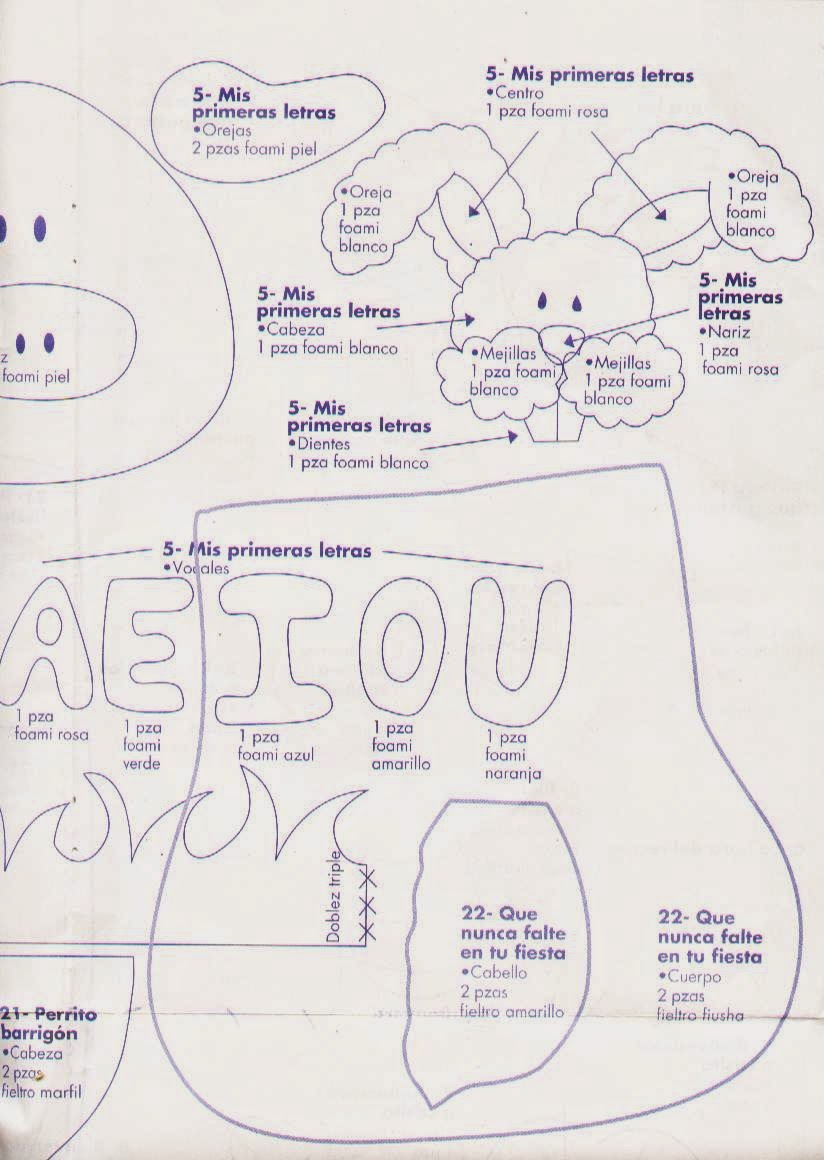 5- Mis
primeras letras
•Orejas
2 pzas foami piel
5- Mis primeras letras
•Centro
1 pza foami rosa
•Oreja
1 pza
foami
blanco
•Oreja
1 pza
foami
blanco
5- Mis
primeras letras
•Cabeza
1 pza foami blanco
5- Mis
primeras
letras
•Nariz
1 pza
foami rosa
z
foami piel
•Mejillas
1 pza foami
blanco
•Mejillas
1 pza foami
blanco
5- Mis
primeras letras
•Dientes
1 pza foami blanco
5- Mis primeras letras
•Vocales
A E I O U
1 pza
foami rosa
1 pza
foami
verde
1 pza
foami azul
1 pza
foami
amarillo
1 pza
foami
naranja
Doblez triple
22- Que
nunca falte
en tu fiesta
•Cabello
2 pzas
fieltro amarillo
22- Que
nunca falte
en tu fiesta
•Cuerpo
2 pzas
fieltro fiusha
21- Perrito
barrigón
•Cabeza
2 pzas
fieltro marfil